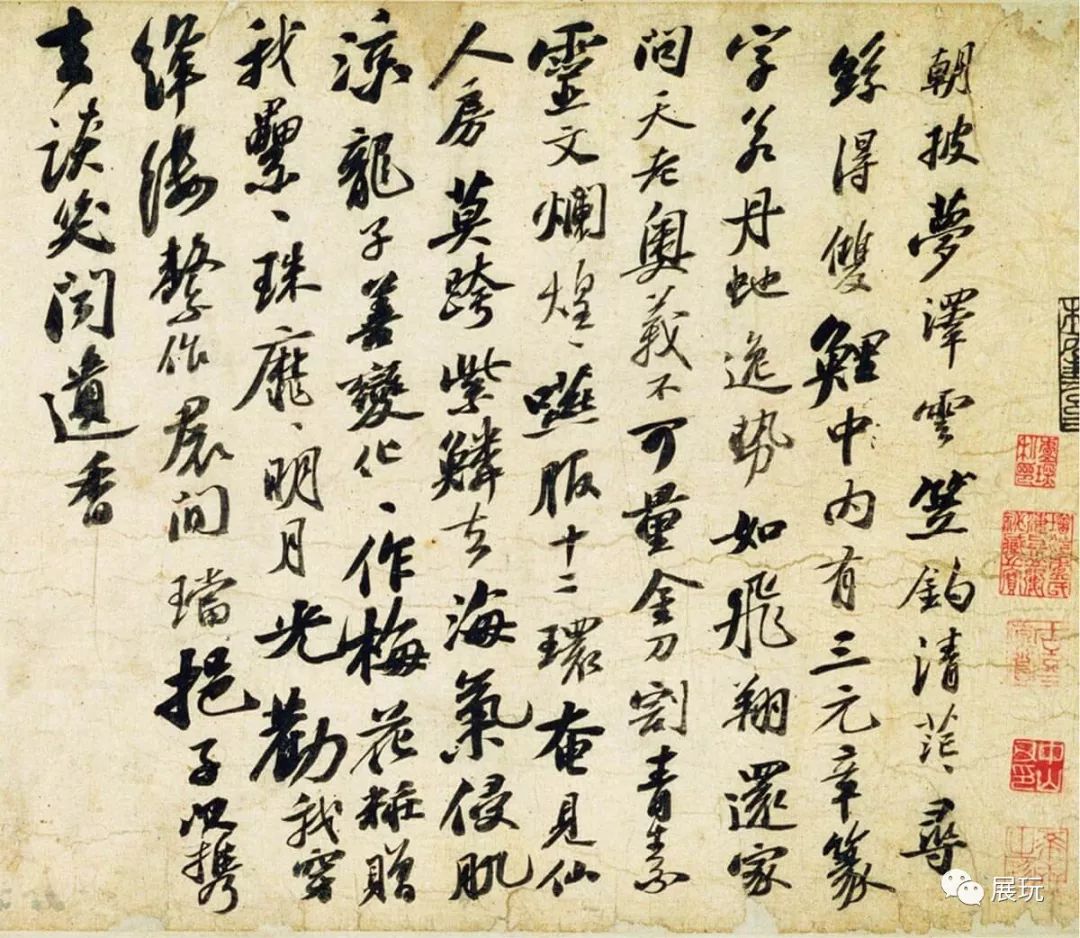 朝披夢澤雲笠釣清茫、尋
絲得雙鯉中、內有三元章篆
字若丹虵逸勢如飛翔還家
問天老奧義不可量金刀割青素
靈文爛煌、嚥服十二環奄見仙
人房莫跨紫鱗去海氣侵肌
涼龍子善變化、作梅花粧贈
我纍、珠靡、明月光勸我穿
絳縷繫作裠間璫挹子以攜
去談笑聞遺香
展玩